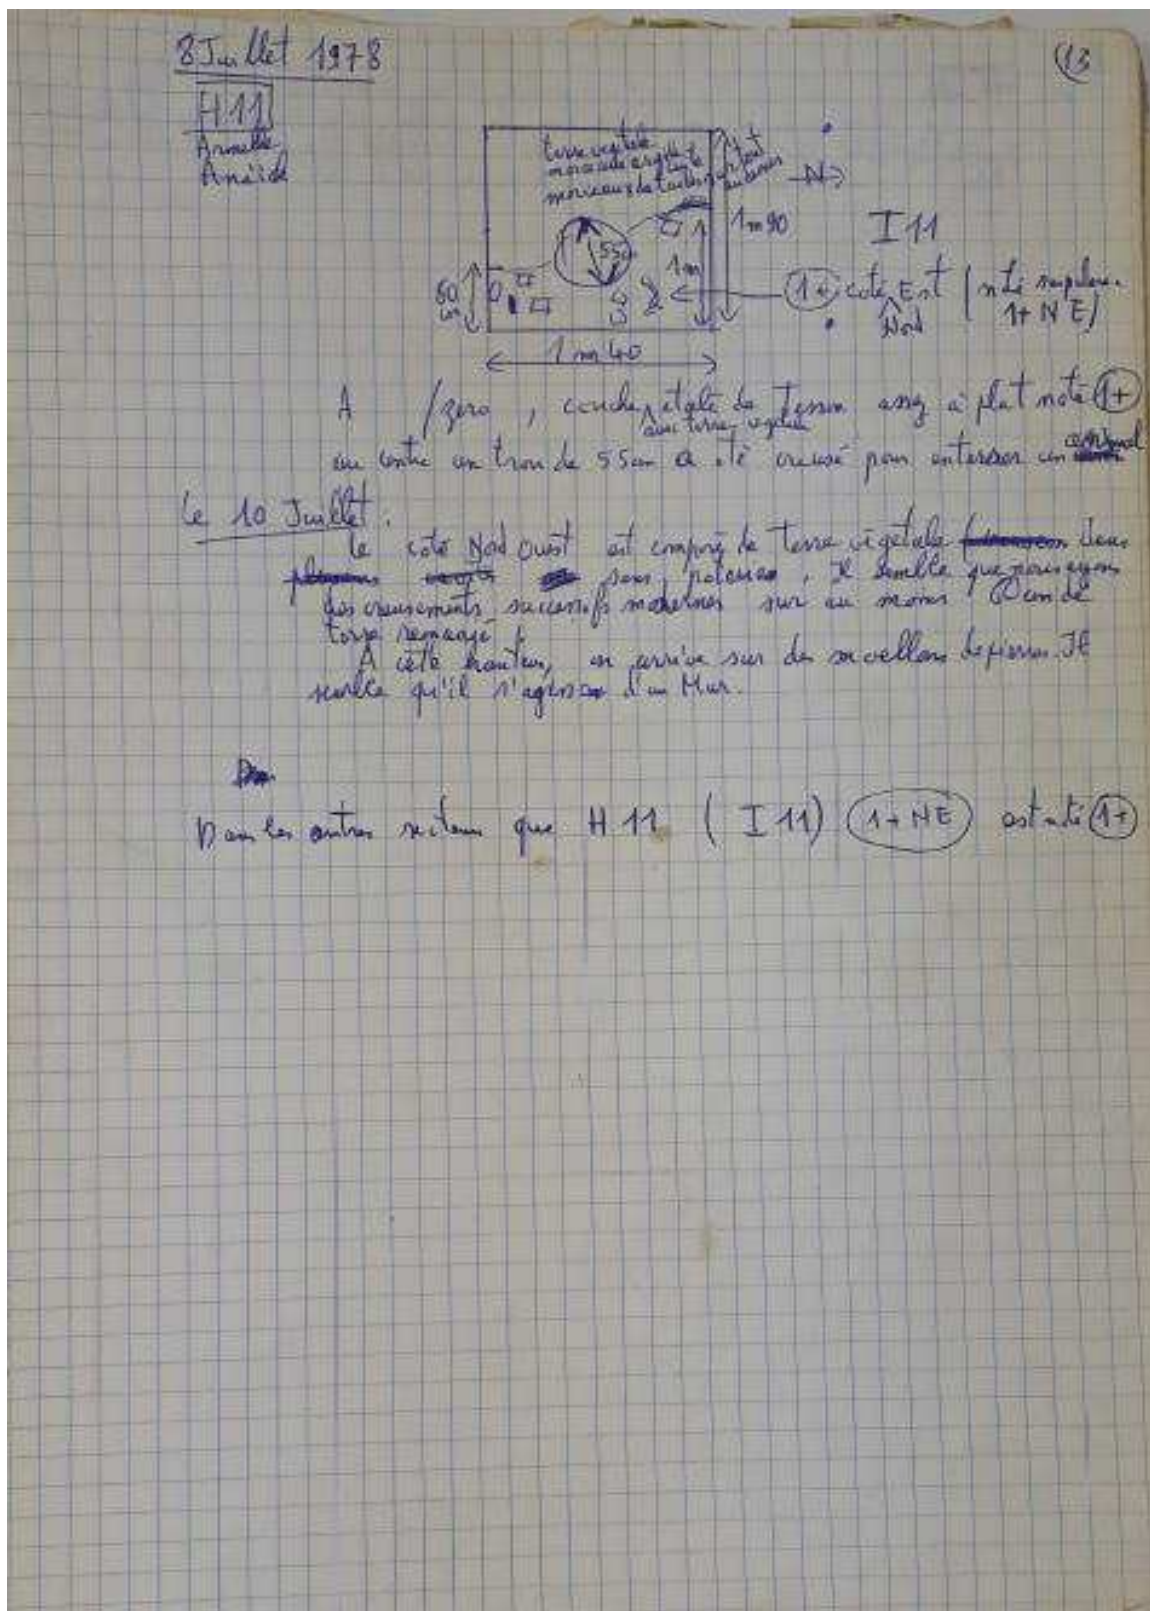 8 Juillet 1978
13
H11
Armelle
Anaïde
terre végétale
morceaux de
N
55cm
1m
1m90
60 cm
1m40
I 11
1+ coté Est
Nord
1+ NE)
A /zero, couche étalé de assez à plat noté 1+
avec terre végétale
au centre un trou de 55cm a été creusé pour enterrer un animal
Le 10 Juillet.
Le coté Nord Ouest est composé de terre végétale
sans poteries, Il semble que nous ayons
des creusements successifs modernes sur au moins 60 cm de
terre remangé
A cette hauteur, on arrive sur des moellons de pierres. Il
semble qu'il s'agisse d'un Mur.
Dans les autres secteurs que H 11 ( I 11) 1+ NE est noté 1+